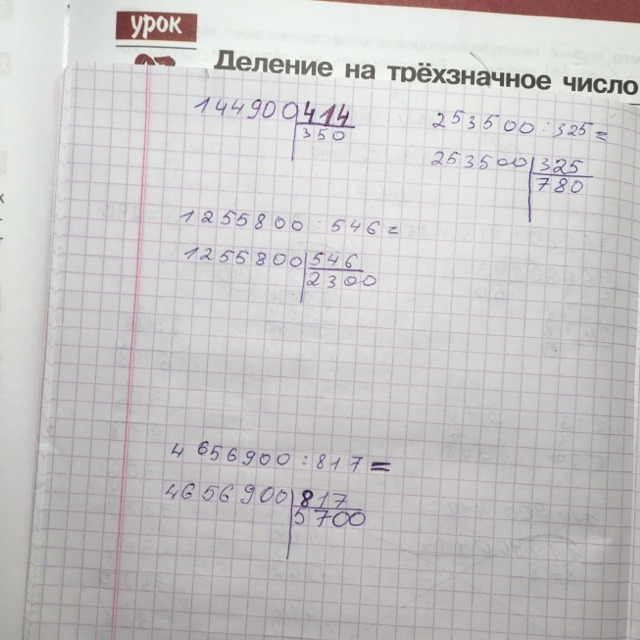 урок
Деление на трёхзначное число
144900 414
350
253500 : 325 =
253500 325
780
1255800 : 546 =
1255800 546
2300
4656900 : 817 =
4656900 817
5700